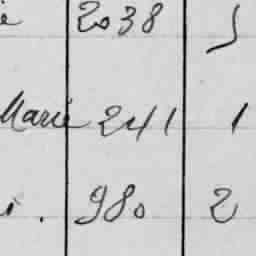 2038 5
Marie 241 1
980 2